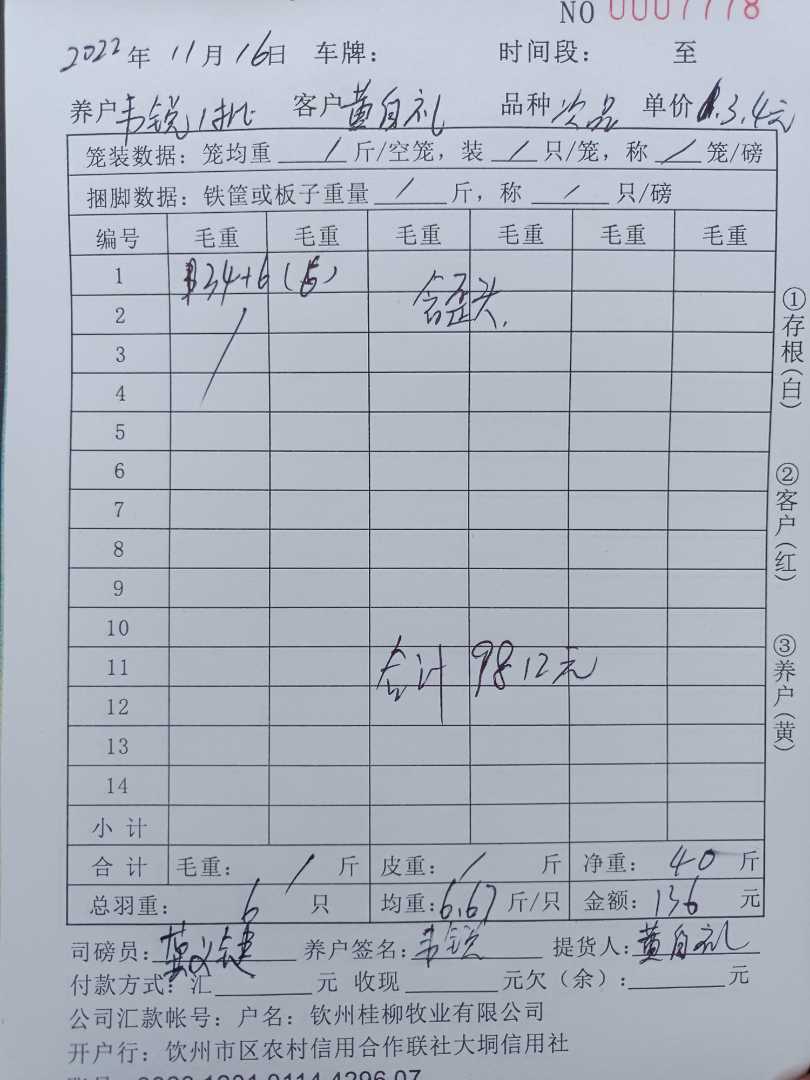 NO 0007778
2022年 11月 16日 车牌: 时间段: 至
养户韦锐1批 客户黄自礼 品种次品 单价3.4元
笼装数据: 笼均重 / 斤/空笼, 装 / 只/笼, 称 / 笼/磅
捆脚数据: 铁筐或板子重量 / 斤, 称 / 只/磅
编号 毛重 毛重 毛重 毛重 毛重 毛重
1 34+6 (6)
2 含歪头.
3
4
5
6
7
8
9
10
11 合计 9812元
12
13
14
小计
合计 毛重: / 斤 皮重: / 斤 净重: 40 斤
总羽重: 6 只 均重: 6.67 斤/只 金额: 136 元
司磅员: 养户签名: 韦锐 提货人: 黄自礼
付款方式: 汇 元 收现 元欠(余): 元
公司汇款帐号: 户名: 钦州桂柳牧业有限公司
开户行: 钦州市区农村信用合作联社大垌信用社
①存根(白)
②客户(红)
③养户(黄)